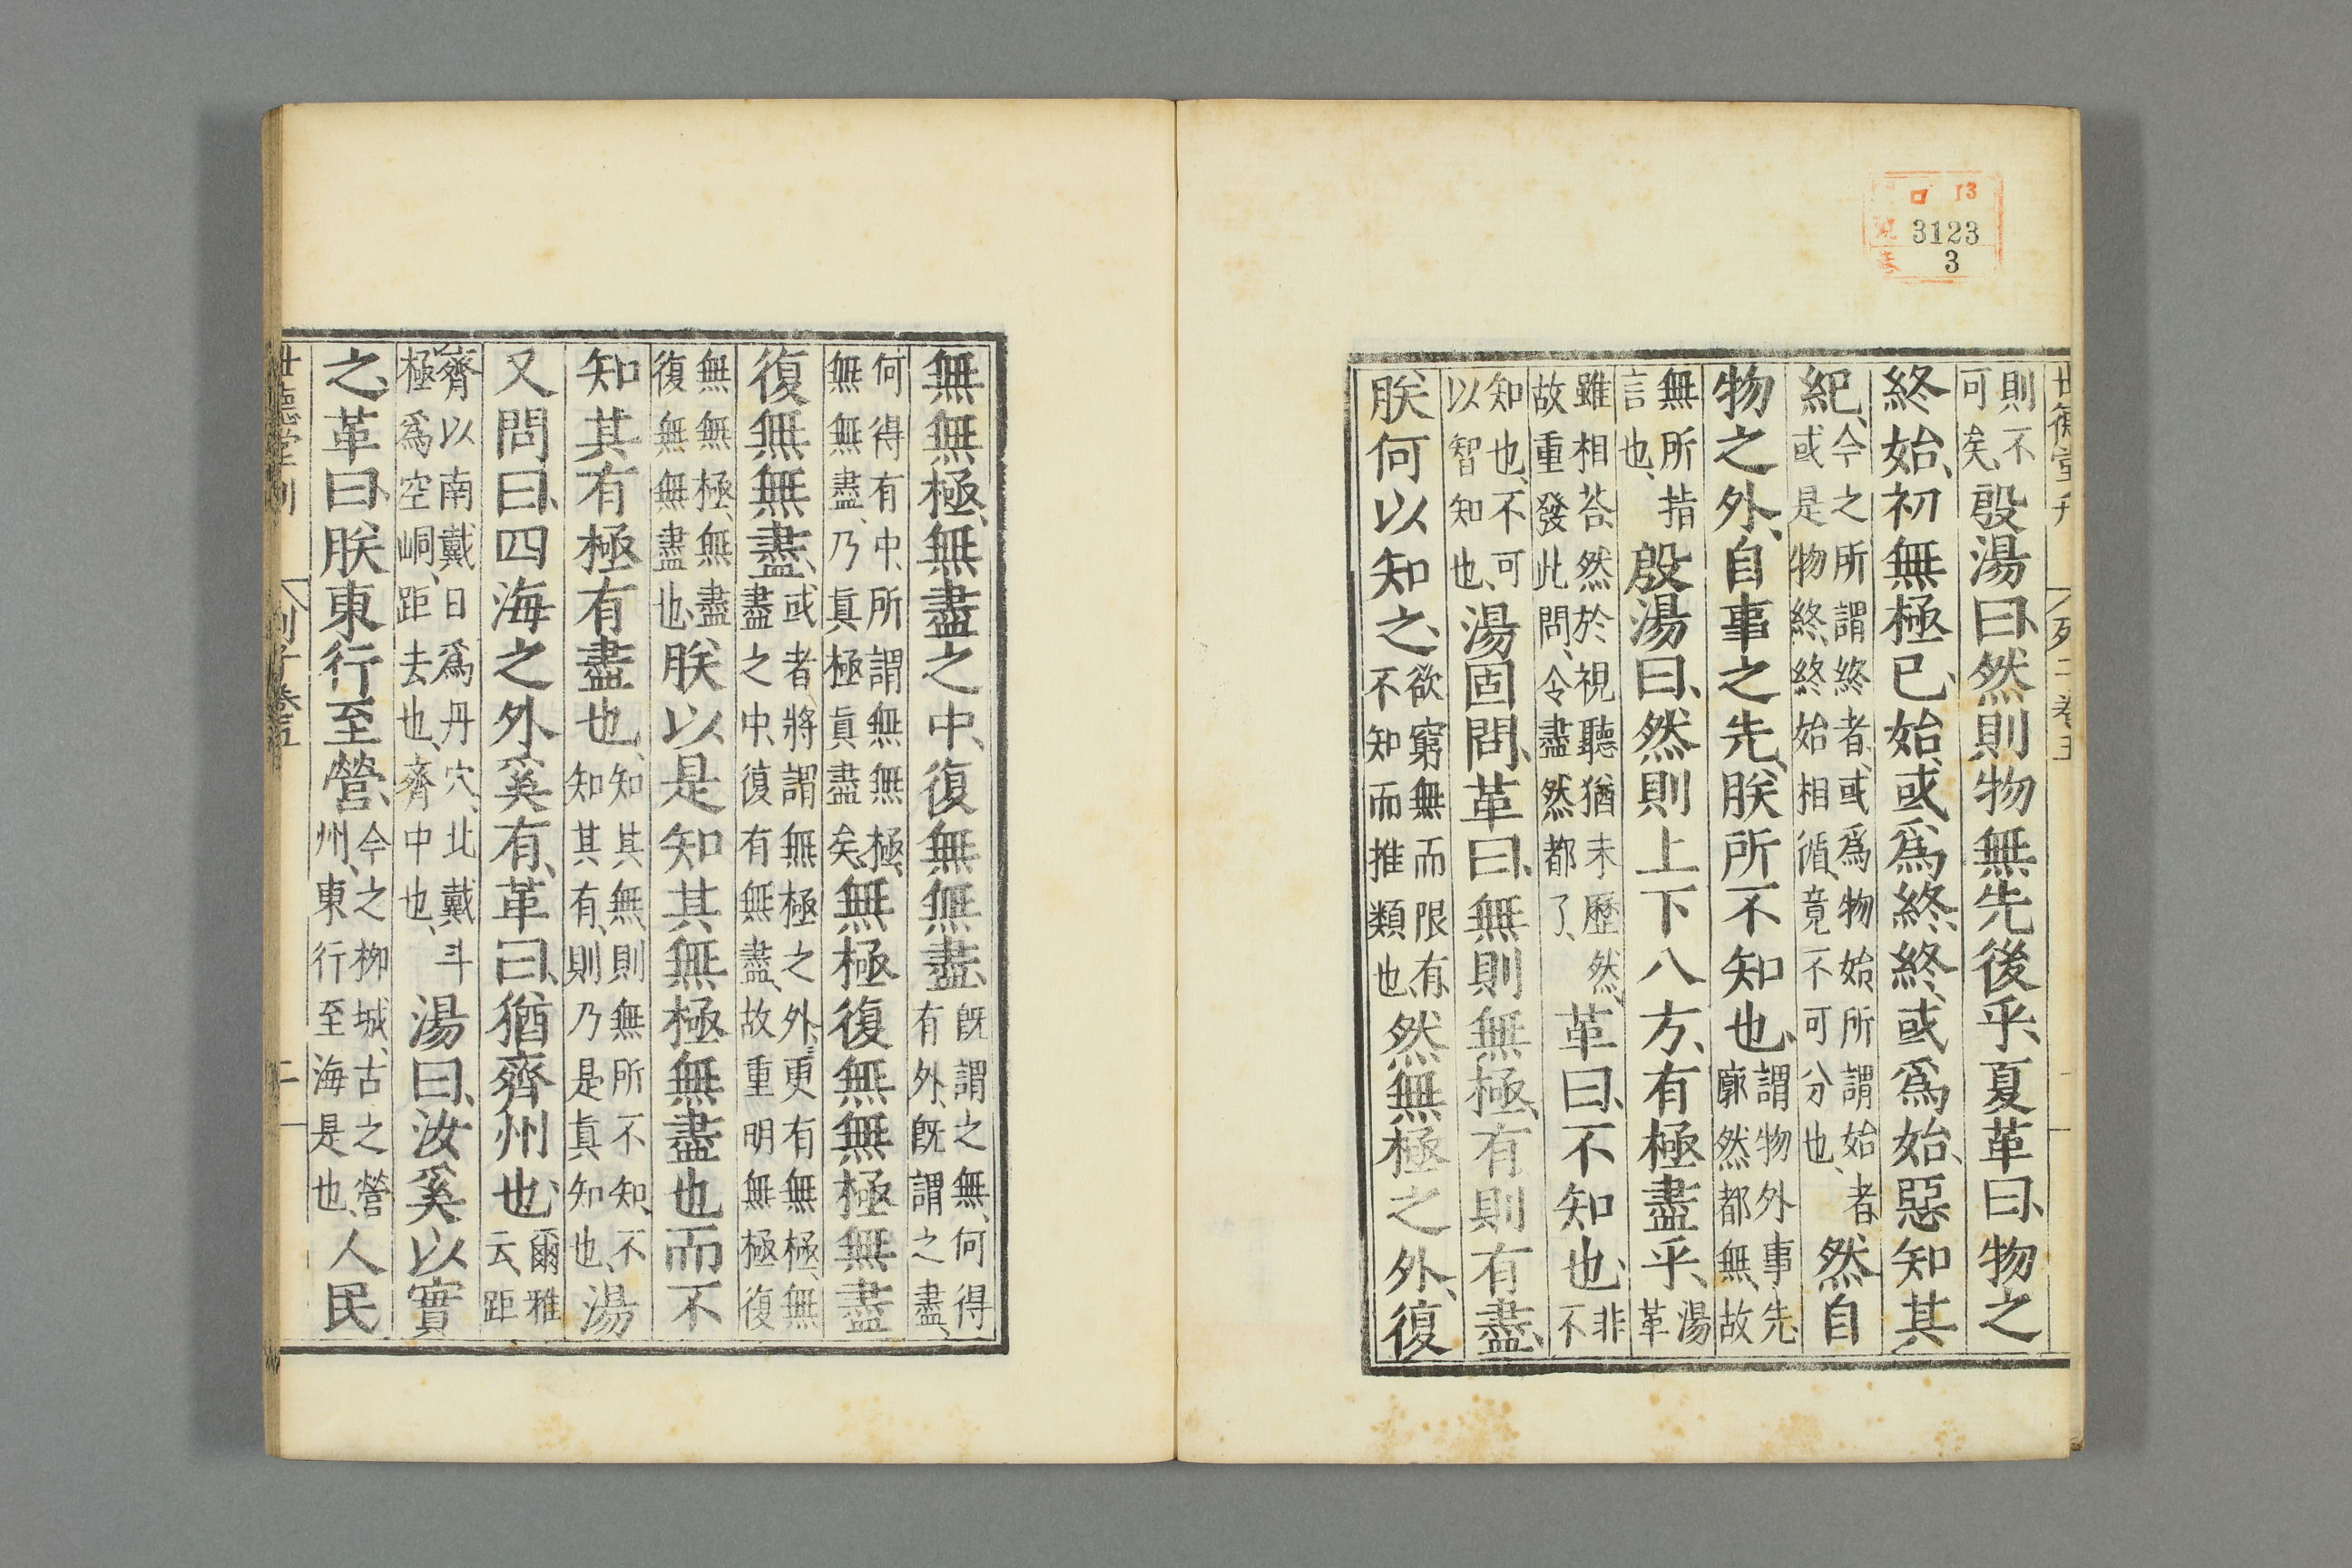 口 13
號 3123
3
則不可矣、殷湯曰、然則物無先後乎、夏革曰、物之
終始、初無極已、始或爲終、終或爲始、惡知其
紀、今之所謂終者、或爲物始、所謂始者、或是物終、終始相循、竟不可分也、然自
物之外、自事之先、朕所不知也、謂物外事先、廓然都無、故
無所措言也、殷湯曰、然則上下八方、有極盡乎、湯革
雖相荅、然於視聽猶未歷然、故重發此問、令盡然都了、革曰、不知也、非不
知也、不可以智知也、湯固問、革曰、無則無極、有則有盡、
朕何以知之、欲窮無而限有、不知而推類也、然無極之外、復
無無極、無盡之中、復無無盡、既謂之無、何得有外、既謂之盡、
何得有中、所謂無無極、無無盡、乃真極真盡矣、無極復無無極無盡
復無無盡、或者將謂無極之外、更有無極、無盡之中、復有無盡、故重明無極復
無無極、無盡復無無盡也、朕以是知其無極無盡也而不
知其有極有盡也、知其無、則無所不知、不知其有、則乃是真知也、湯
又問曰、四海之外奚有、革曰、猶齊州也、爾雅云、距
齊以南戴日爲丹穴、北戴斗極爲空峒、距去也、齊中也、湯曰、汝奚以實
之、革曰、朕東行至營、今之柳城、古之營州、東行至海是也、人民